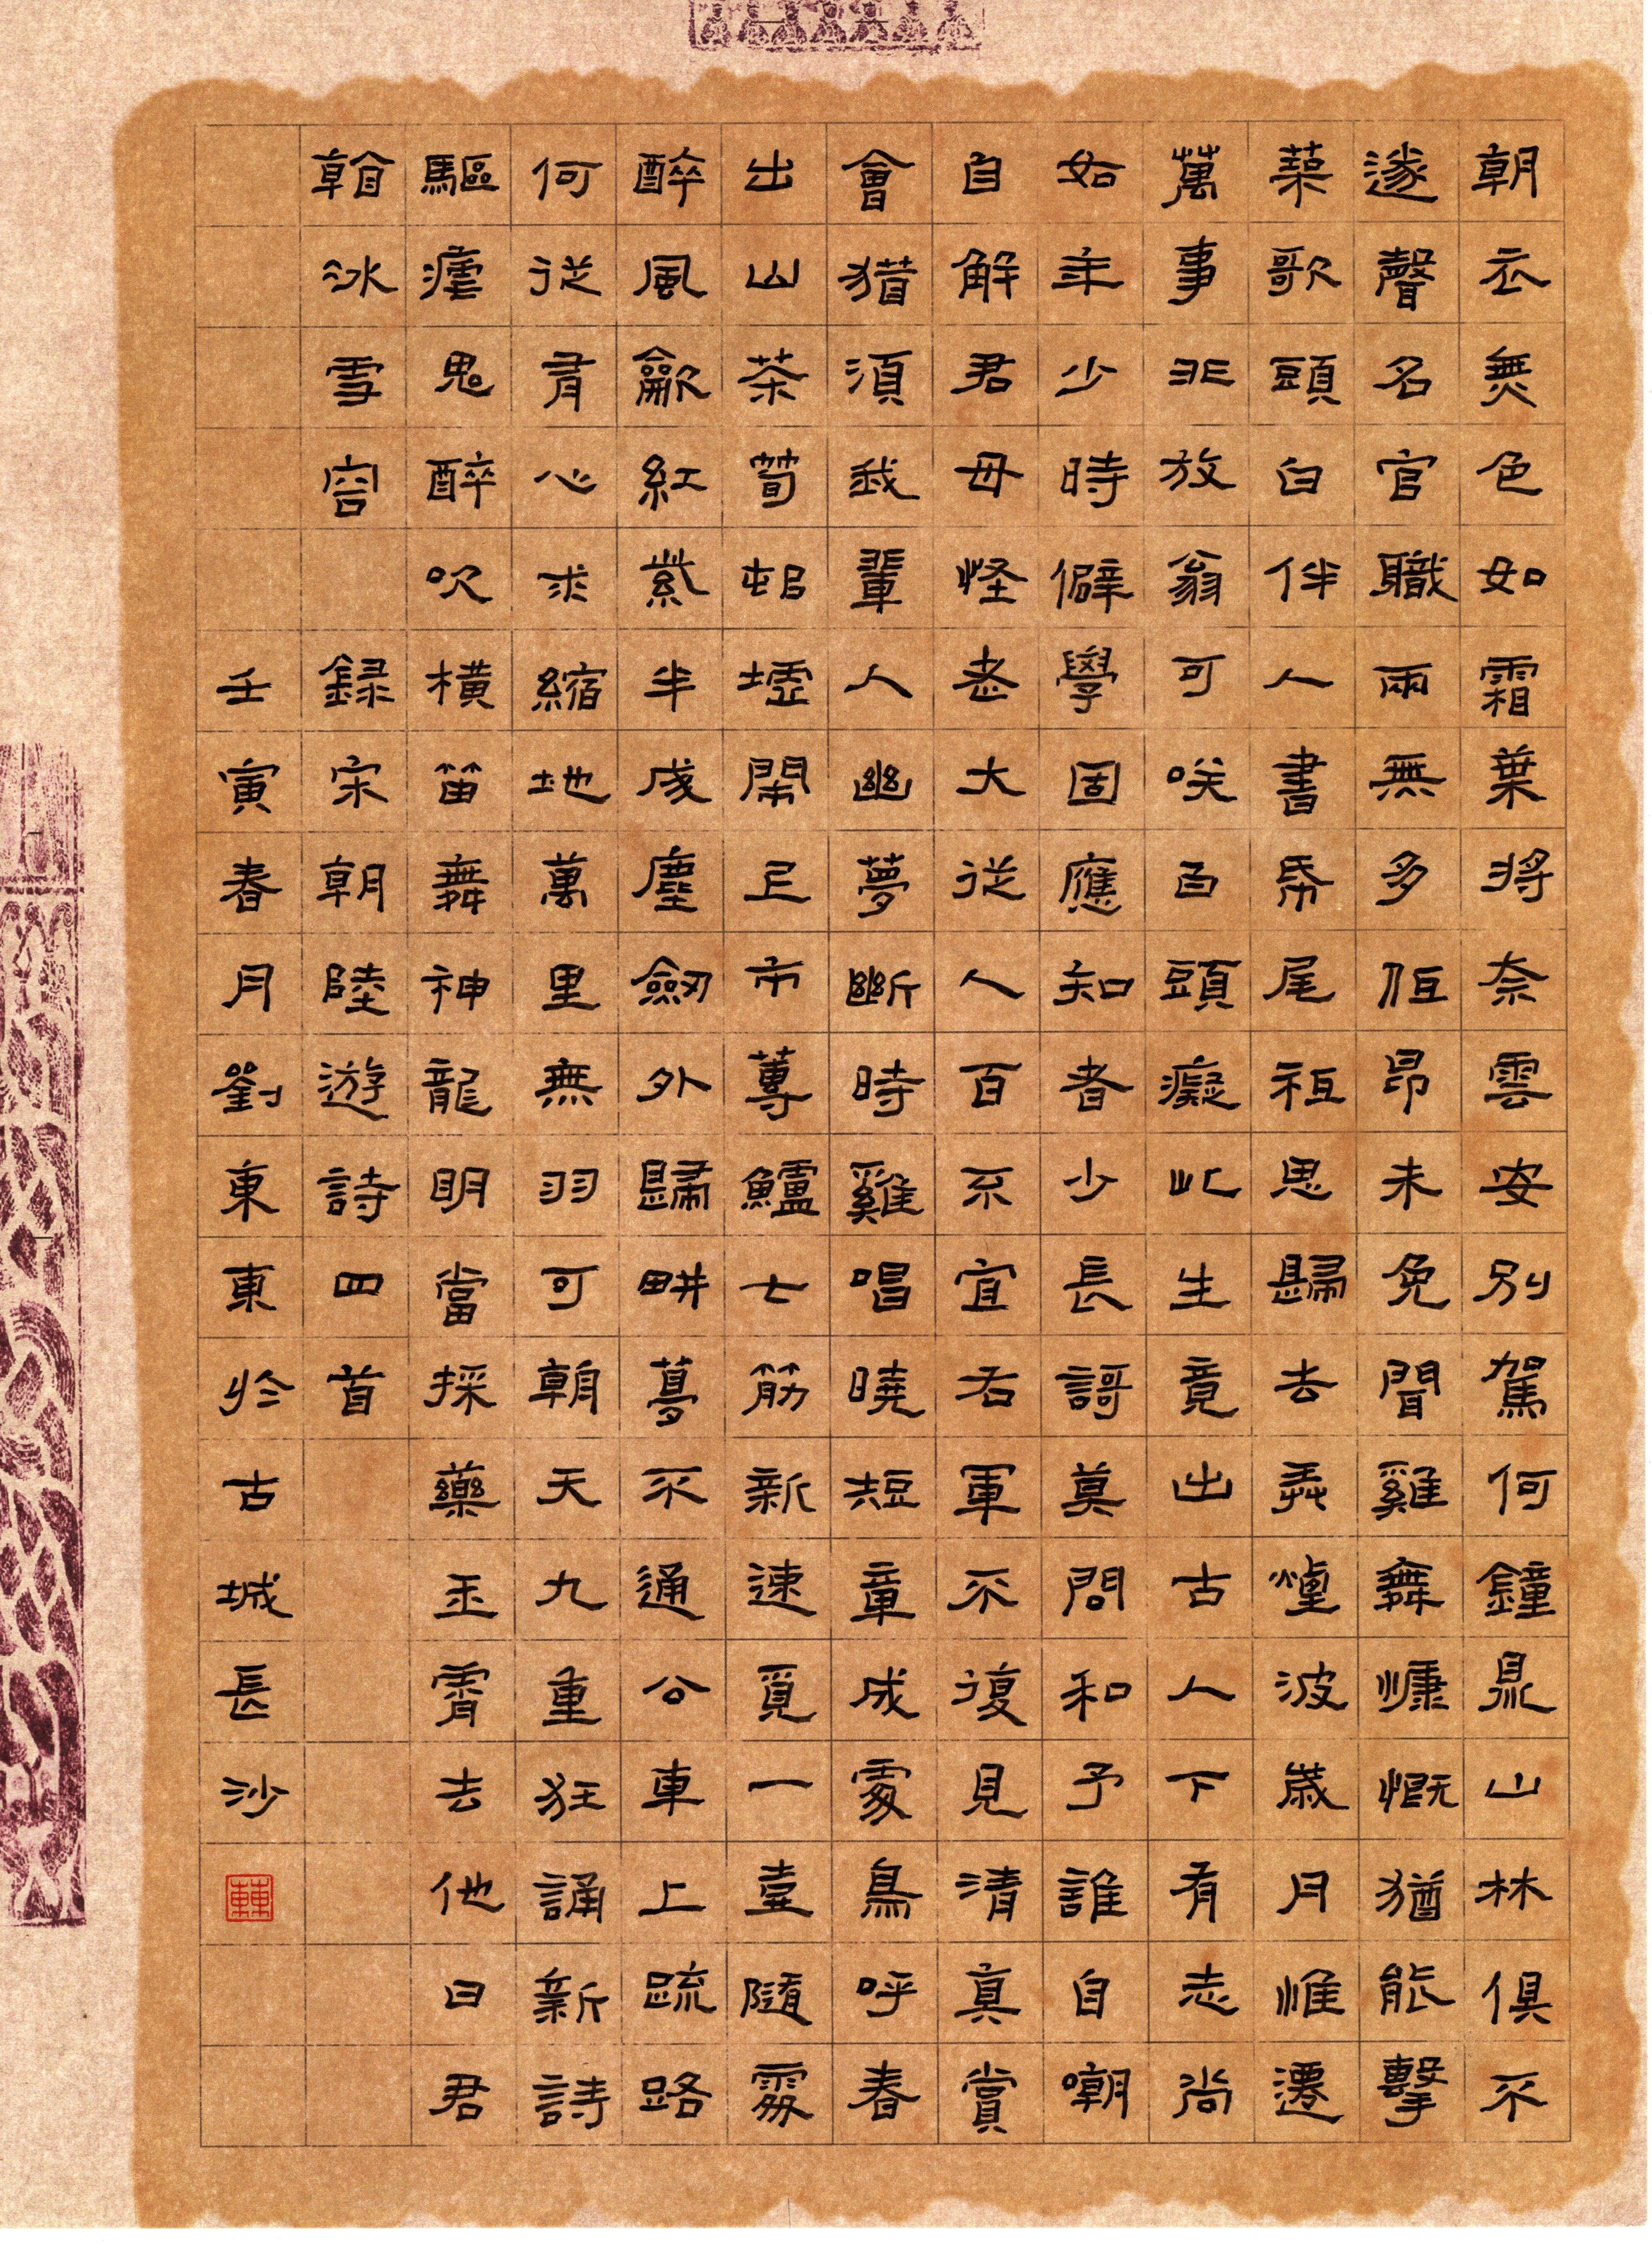 朝衣無色如霜葉將奈雲安別駕何鐘鼎山林俱不
遂聲名官職兩無多低昂未免聞雞舞慷慨猶能擊
築歌頭白伴人書帋尾祗思歸去弄煙波歲月惟遷
萬事非放翁可咲白頭癡此生竟出古人下有志尚
如年少時僻學固應知者少長歌莫問和予誰自嘲
自解君毋怪老大從人百不宜右軍不復見清真賞
會猶須我輩人幽夢斷時雞唱曉短章成處鳥呼春
出山茶荀邨墟鬧上市蓴鱸匕筯新速覓一臺隨處
醉風歙紅紫半成塵劍外歸畊夢不通公車上疏路
何從有心求縮地萬里無羽可朝天九重狂誦新詩
驅瘧鬼醉吹橫笛舞神龍明當採藥玉霄去他日君
冰雪容 錄宋朝陸遊詩四首
壬寅春月劉東東於古城長沙